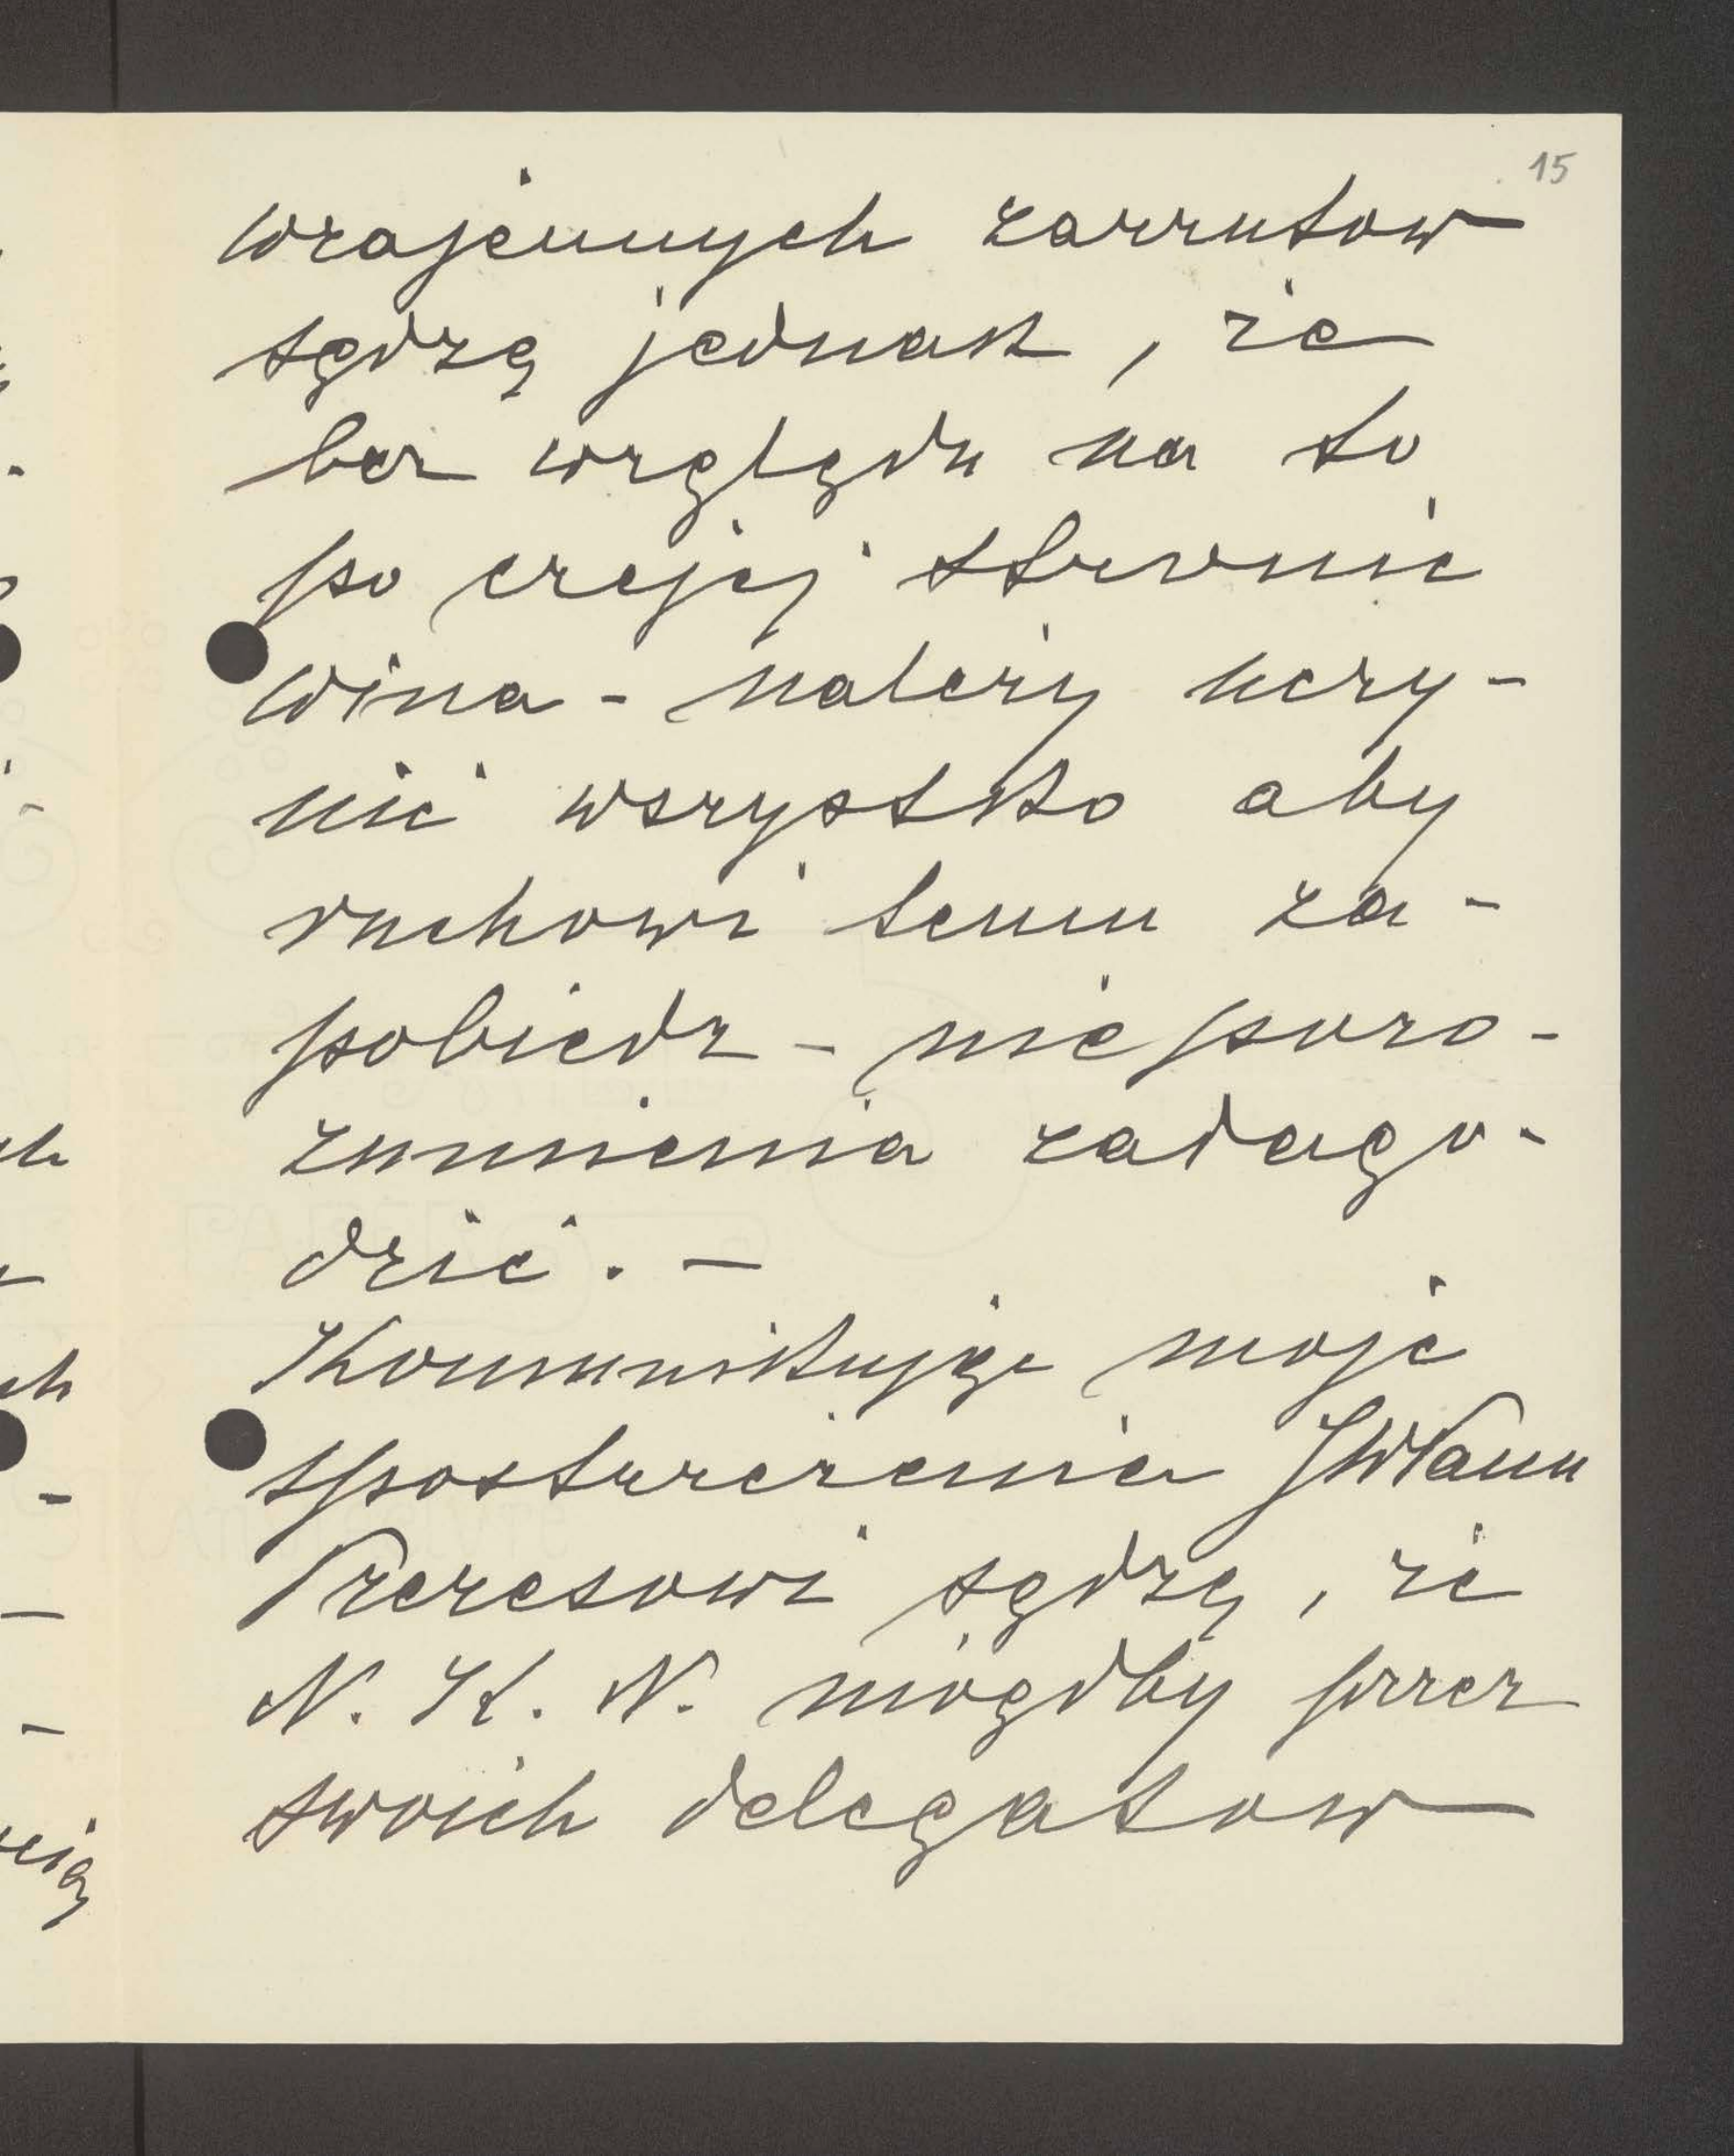 15
wzajemnych zarzutow
sądzę jednak, że
bez względu na to
po czyjej stronie
wina - należy uczy-
nić wszystko aby
ruchowi temu za-
pobiedz - nieporo-
zumienia załago-
dzić. -
Komunikując moje
spostrzeżenia JWPanu
Prezesowi sądzę, że
N. K. N. mógłby przez
swoich delegatow